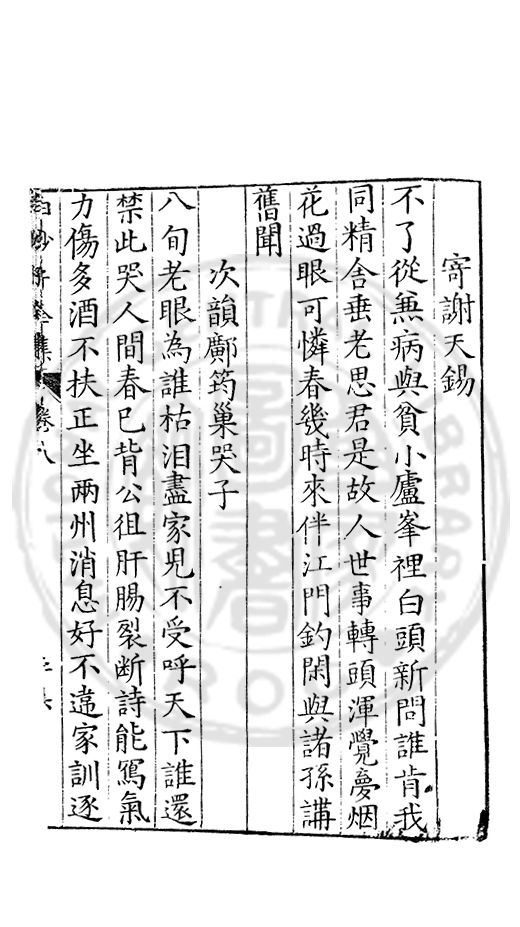 寄謝天錫
不了從無病與貧小廬峯裡白頭新問誰肯我
同精舍垂老思君是故人世事轉頭渾覺夢烟
花過眼可憐春幾時來伴江門釣閑與諸孫講
舊聞
次韻鄺筠巢哭子
八旬老眼為誰枯泪盡家兒不受呼天下誰還
禁此哭人間春已背公徂肝腸裂断詩能寫氣
力傷多酒不扶正坐兩州消息好不違家訓逐
白沙子全集
卷八